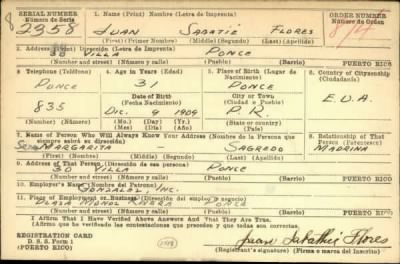 SERIAL NUMBER 1. Name (Print) Nombre (Letra de Imprenta) ORDER NUMBER
Número de Serie Número de Orden
2358 JUAN SABATIÉ FLORES
(First) (Primer Nombre) (Middle) (Segundo) (Last) (Apellido)
2. Address (Print) Dirección (Letra de Imprenta)
30 VILLA PONCE PUERTO RICO
(Number and street) (Número y calle) (Pueblo) (Barrio)
3. Telephone (Teléfono) 4. Age in Years (Edad) 5. Place of Birth (Lugar de Nacimiento) 6. Country of Citizenship (Ciudadanía)
PONCE 31 PONCE
Date of Birth (Fecha Nacimiento) City or Town (Ciudad o Pueblo)
835 DIC. 9 1909 P.R. E.U.A.
(Number) (Número) (Mo.) (Mes) (Day) (Día) (Yr.) (Año) (State or country)
7. Name of Person Who Will Always Know Your Address (Nombre de la Persona que siempre sabrá su dirección) 8. Relationship of That Person (Parentesco)
MARGARITA - SAGREDO MADRINA
(First) (Primer Nombre) (Middle) (Segundo) (Last) (Apellido)
9. Address of That Person (Dirección de esa persona)
30 VILLA PONCE
(Number and street) (Número y calle) (Pueblo) (Barrio) PUERTO RICO
10. Employer's Name (Nombre del Patrono)
GONZALEZ, INC.
11. Place of Employment or Business (Dirección del empleo o negocio)
PLAZA MUÑOZ RIVERA PONCE
(Number and street) (Número y calle) (Pueblo) (Barrio) PUERTO RICO
I Affirm That I Have Verified Above Answers And That They Are True.
(Afirmo que he verificado las contestaciones que preceden y que todas son correctas.
REGISTRATION CARD
D. S. S. Form 1
(PUERTO RICO)
Juan Sabatié Flores
(Registrant's signature) (Firma o marca del inscrito)